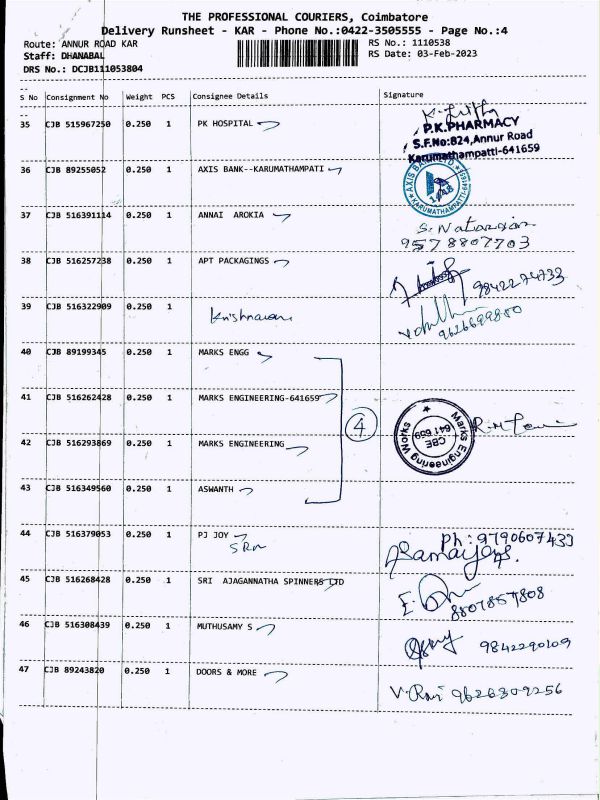 THE PROFESSIONAL COURIERS, Coimbatore
Delivery Runsheet - KAR - Phone No.:0422-3505555 - Page No.:4
Route: ANNUR ROAD KAR
RS No.: 1110538
Staff: DHANABAL
RS Date: 03-Feb-2023
DRS No.: DCJB111053804
S No Consignment No Weight PCS Consignee Details Signature
35 CJB 515967250 0.250 1 PK HOSPITAL
P.K.PHARMACY
S.F.No:824,Annur Road
Karumathampatti-641659
36 CJB 89255052 0.250 1 AXIS BANK--KARUMATHAMPATI
37 CJB 516391114 0.250 1 ANNAI AROKIA
S. Natarajan
9578807703
38 CJB 516257238 0.250 1 APT PACKAGINGS
9842274733
39 CJB 516322909 0.250 1
9626699880
40 CJB 89199345 0.250 1 MARKS ENGG
41 CJB 516262428 0.250 1 MARKS ENGINEERING-641659
4
Marks Engineering Works
CBE
641 659
42 CJB 516293869 0.250 1 MARKS ENGINEERING
43 CJB 516349560 0.250 1 ASWANTH
44 CJB 516379053 0.250 1 PJ JOY
Ph: 9790607433
45 CJB 516268428 0.250 1 SRI AJAGANNATHA SPINNERS LTD
8807857808
46 CJB 516308439 0.250 1 MUTHUSAMY S
9842290109
47 CJB 89243820 0.250 1 DOORS & MORE
V. Ravi 9626809256